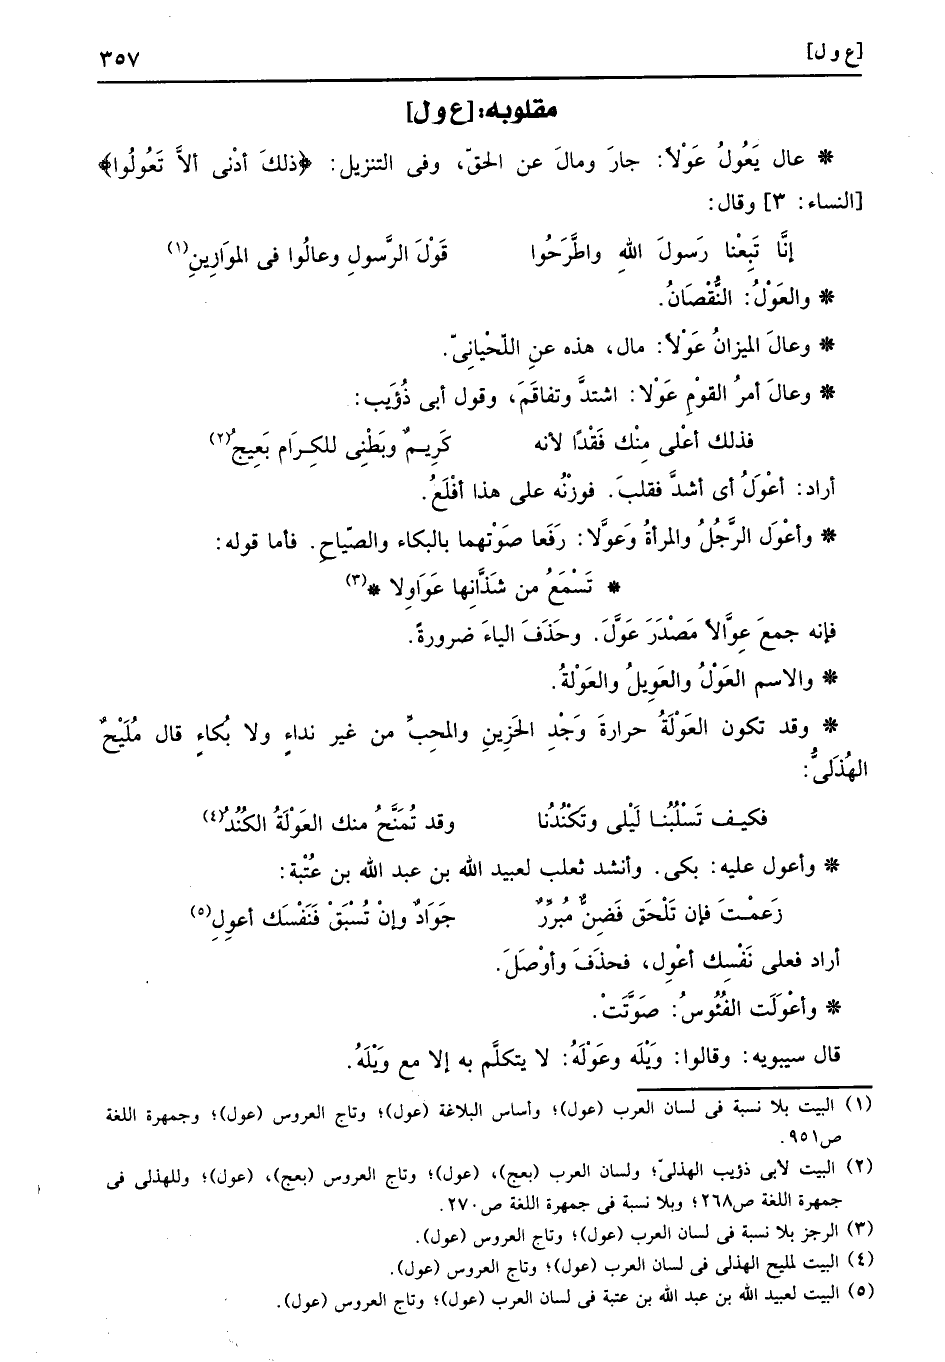 [ع و ل] ٣٥٧
مقلوبه: [ع و ل]
* عال يَعُولُ عَوْلاً: جارَ ومالَ عن الحقّ، وفى التنزيل: ﴿ذلكَ أدْنى ألاَّ تَعُولُوا﴾
[النساء: ٣] وقال:
إنَّا تَبِعْنا رَسولَ اللهِ واطَّرَحُوا قَوْلَ الرَّسولِ وعالُوا فى الموَازِينِ(١)
* والعَوْلُ: النُّقْصَانُ.
* وعالَ الميزانُ عَوْلاً: مال، هذه عنِ اللّحْيانىّ.
* وعالَ أمرُ القوْمِ عَوْلا: اشتدَّ وتفاقَمَ، وقول أبى ذُؤَيب:
فذلك أعْلى مِنْك فَقْدًا لأنه كَرِيمٌ وبَطْنِى للكِرَام بَعِيجُ(٢)
أراد: أعْوَلُ أى أشدَّ فقلبَ. فوزْنُه على هذا أفْلَعُ.
* وأعْوَل الرَّجُلُ والمرأةُ وَعَولَّا: رَفَعا صوَْتهما بالبكاء والصّياحِ. فأما قوله:
* تَسْمَعُ من شَذَّانِها عَوَاوِلا *(٣)
فإنه جمعَ عِوَّالاً مَصْدَرَ عَوَّلَ. وحَذَفَ الياءَ ضرورةً.
* والاسم العَوْلُ والعَوِيلُ والعَوْلةُ.
* وقد تكون العَوْلَةُ حرارةَ وَجْدِ الحَزِينِ والمحِبِّ من غير نداءٍ ولا بُكاءٍ قال مُلَيْحٌ
الهُذَلىُّ:
فكيف تَسْلُبُنا لَيْلى وتَكْنُدُنا وقد تُمَنَّحُ منك العَوْلَةُ الكُنُدُ(٤)
* وأعول عليه: بكى. وأنشد ثعلب لعبيد الله بن عبد الله بن عُتْبة:
زَعمْتَ فإن تَلْحَق فَضِنٌّ مُبرِّزٌ جَوَادٌ وإنْ تُسْبَقْ فَنَفْسَك أعولِ(٥)
أراد فعلى نَفْسِك أعْوِل، فحذَفَ وأوْصَلَ.
* وأعْوَلَت القُئُوسُ: صَوَّتَتْ.
قال سيبويه: وقالوا: وَيْلَه وعَوْلَهُ: لا يتكلَّم به إلا مع وَيْلَهُ.
(١) البيت بلا نسبة فى لسان العرب (عول)؛ وأساس البلاغة (عول)؛ وتاج العروس (عول)؛ وجمهرة اللغة
ص٩٥١.
(٢) البيت لأبى ذؤيب الهذلىّ؛ ولسان العرب (بعج)، (عول)؛ وتاج العروس (بعج)، (عول)؛ وللهذلى فى
جمهرة اللغة ص٢٦٨؛ وبلا نسبة فى جمهرة اللغة ص٢٧٠.
(٣) الرجز بلا نسبة فى لسان العرب (عول)؛ وتاج العروس (عول).
(٤) البيت لمليح الهذلى فى لسان العرب (عول)؛ وتاج العروس (عول).
(٥) البيت لعبيد الله بن عبد الله بن عتبة فى لسان العرب (عول)؛ وتاج العروس (عول).